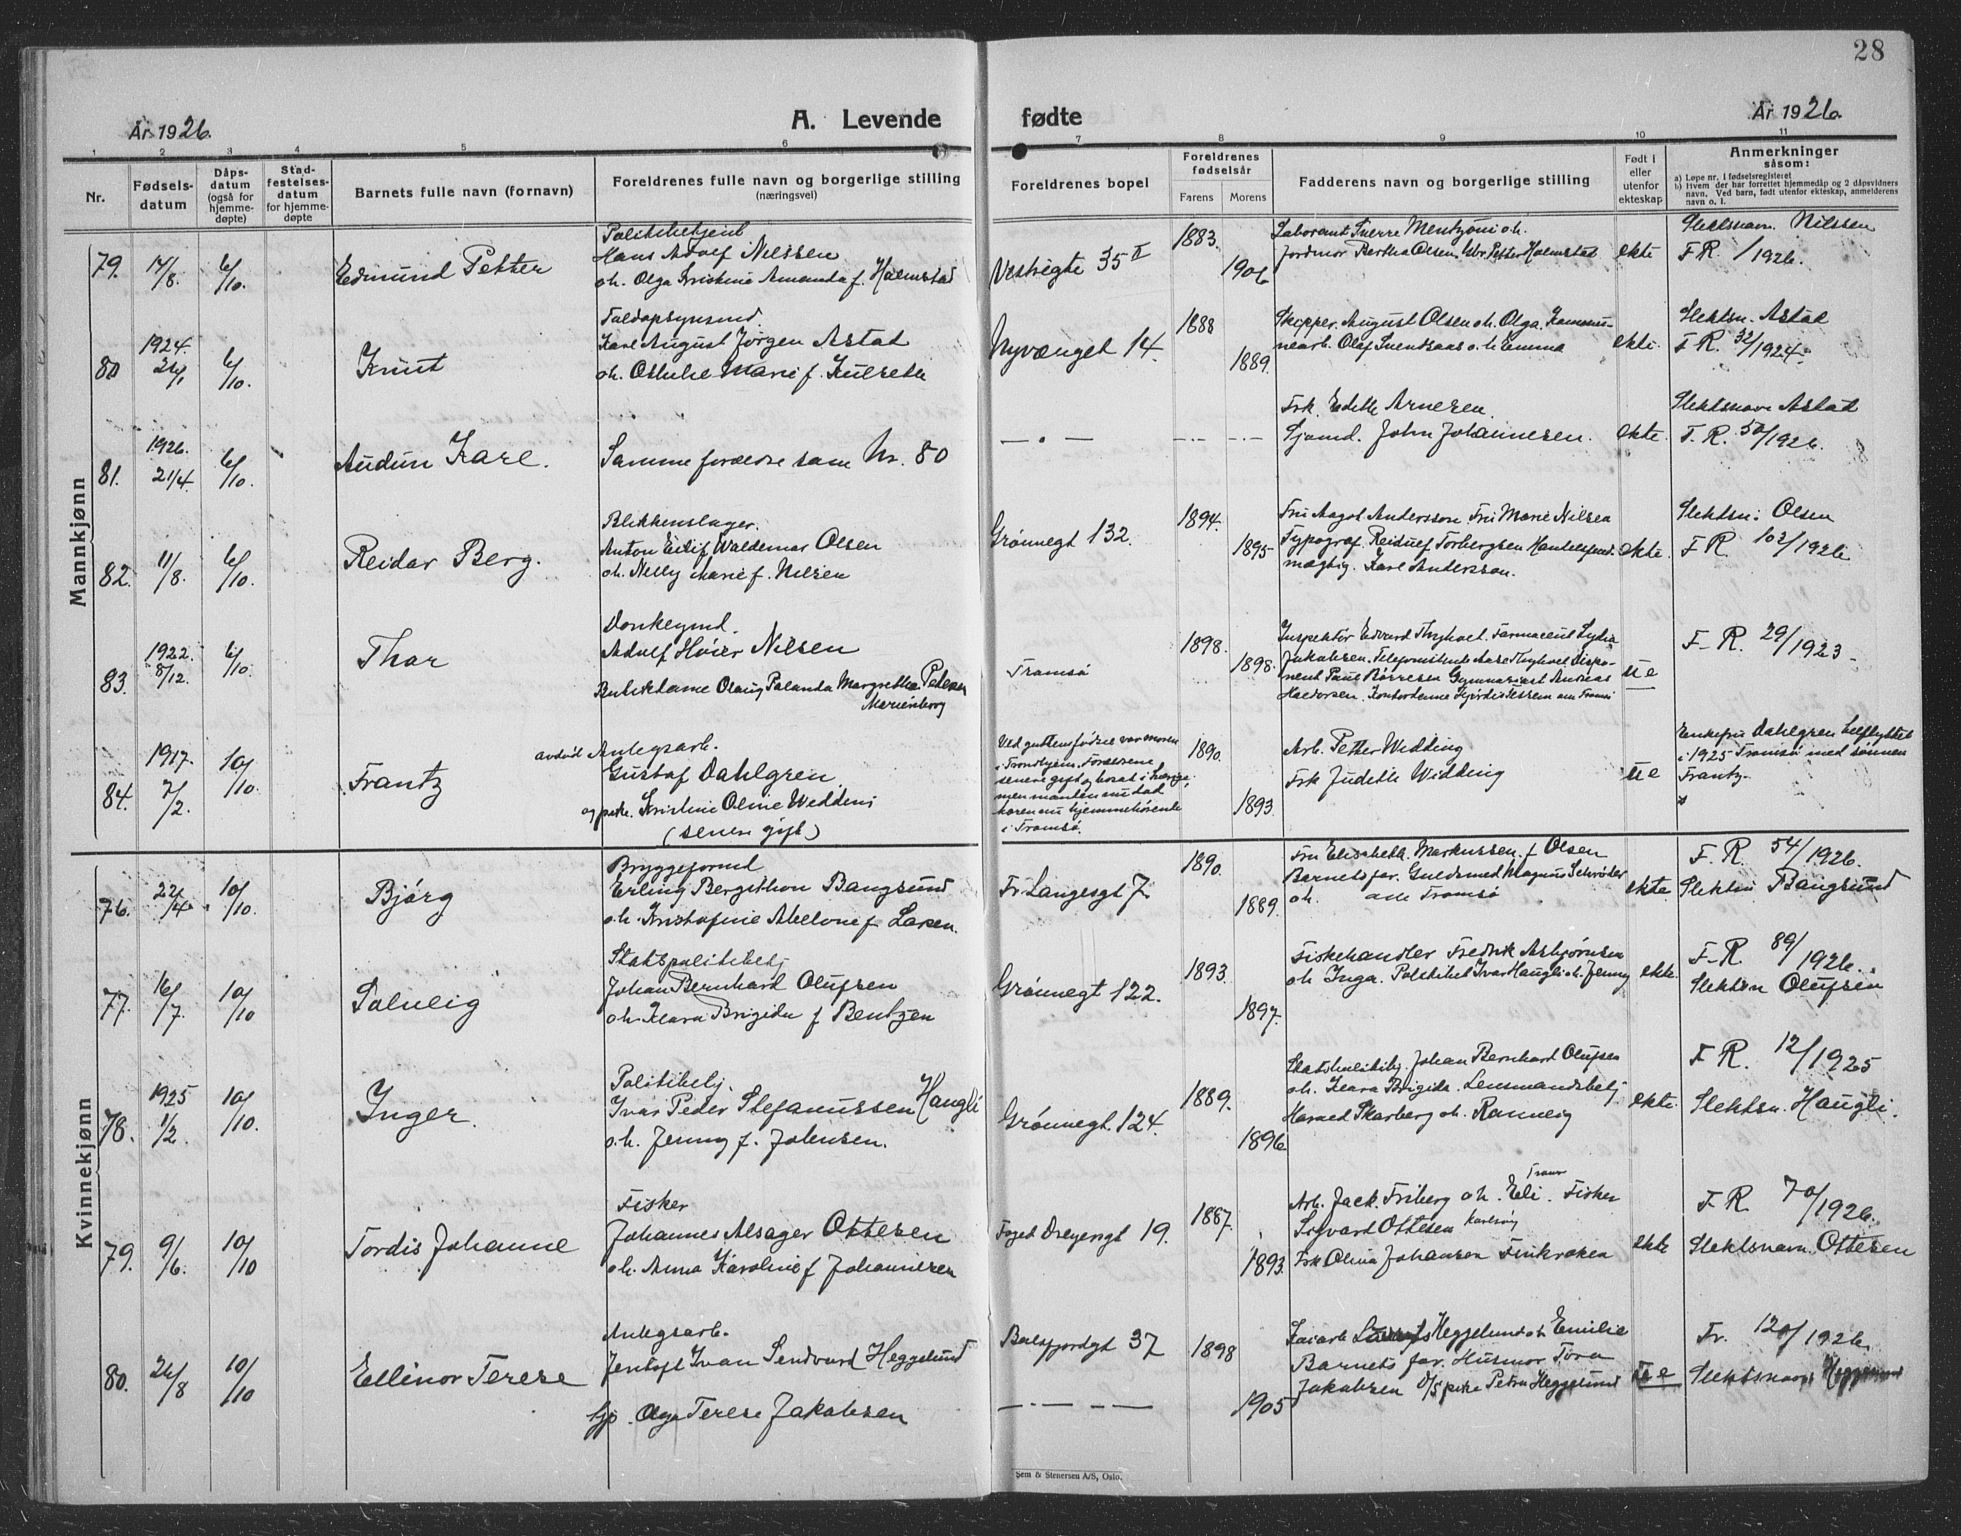 28
År 1926.
A. Levende
fødte
År 1926.
1 2 3 4 5 6 7 8 9 10 11
Nr.
Fødsels-
datum
Dåps-
datum
(også for
hjemme-
døpte)
Stad-
festelses-
datum
for hjemme-
døpte
Barnets fulle navn (fornavn)
Foreldrenes fulle navn og borgerlige stilling
(næringsvei)
Foreldrenes bopel
Foreldrenes
fødselsår
Farens
Morens
Fadderens navn og borgerlige stilling
Født i
eller
utenfor
ekteskap
Anmerkninger
såsom:
a) Løpe nr. i fødselsregisteret
b) Hvem der har forrettet hjemmedåp og 2 dåpsvidners
navn. Ved barn, født utenfor ekteskap, anmelderens
navn o. l.
Mannkjønn
79. 14/8. 6/10. Edmund Petter
Politibetjent
Hans Adolf Nilssen
oh. Olga Kristine Amanda f. Halmstad
Vestregte 35 II
1883.
1906
Laborant Sverre Mentzoni oh.
Jordmor Bertha Olsen, Petter Halmstad
ekte
Slektsnavn. Nilssen
F R /1926.
80 1924. 24/1 6/10. Knut
Karl August Jørgen Astad
oh. Ottilie Marie f. Kulseth
Nyvænget 14.
1888
1889.
Skipper. August Olsen oh. Olga. Kommu-
nearb. Olaf Svendsaas o.h Emma
ekte.
Slektsn. Astad
F R. 32/1924.
81. 1926. 21/4. 6/10. Audun Kare.
Samme foreldre som Nr. 80
— . —
Frk. Edith Arnesen.
Sjømd. John Johannesen.
ekte.
Slektsnavn Astad
F. R. 50/1926.
82. 11/8. 6/10. Reidar Berg.
Blikkenslager.
Anton Eilif Waldemar Olsen
oh. Nelly Marie f. Nilsen
Grønnegt 132.
1894.
1895
Fru Aagot Andersson. Fru Marie Nilsen
Typograf. Reidulf Torbergsen Handelsfuld-
mægtig. Karl Andersson.
ekte.
Slektsn: Olsen
F R. 102/1926
83. 1922. 8/12. 6/10. Thor
Donkeymd.
Adolf Høier Nilsen
Butikdame Osaug Palanda Margretha Petersen
Marienborg
Tromsø
1898.
1898.
Inspektør Edvard Thyholt. Farmaceut Lydia
Jakobsen. Telefonistinde Aase Thyholt Dispo-
nent Paul Børresen Gymnasiast Andreas
Haldorsen. Kontordame Hjørdis Tessem
u e
F-R. 29/1923
84. 1917. 7/2. 10/10. Frantz
avdød Anlegsarb.
Gustaf Dahlgren
og pike. Kristine Oline Wedding
(senere gift)
Ved guttens fødsel var moren
i Trondhjem. Foreldrene
senere gift og bosat i Sverige,
men manden nu død
moren nu hjemmehørende
i Tromsø.
1890.
1893.
Arb. Petter Widding
Frk Judith Widding
u e
Enkefru Dahlgren tilflyttet
i 1925 Tromsø med sønnen
Frantz.
Kvinnekjønn
76. 22/4 10/10. Bjørg
Bryggeformd
Erling Bergithon Bangsund
oh. Kristofine Abelone f. Larsen.
Fr. Langesgt 7.
1890.
1889.
Fru Elisabeth. Markussen. f Olsen
Barnets far. Guldsmed Magnus Schrøder
oh. alle Tromsø
ekte
F. R. 54/1926.
Slektsn Bangsund
77. 16/7. 10/10 Solveig
Statspolitibetj
Johan Bernhard Olufsen
oh. Klara Brigida f Bentzen
Grønnegt 122.
1893.
1897.
Fiskehandler Fredrik Asbjørnsen
oh Inga. Politibet Ivar Haugli oh. Jenny
ekte.
F-R. 89/1926.
Slektsn Olufsen
78. 1925 1/2. 10/10. Inger.
Politibetj.
Ivar Peder Stefanussen Haugli
o.h. Jenny f. Johnsen.
Grønnegt. 124.
1889.
1896
Statspolitibtj. Johan Bernhard Olufsen
oh. Klara Brigida. Lensmandsbetj
Harald Skarberg oh. Rannveig
ekte.
F R. 12/1925
Slektsn. Haugli.
79. 9/6. 10/10 Tordis Johanne
Fisker
Johannes Alsager Ottesen
oh. Anna Karoline f Johannesen
Foged Dreyersgt 19.
1887.
1893.
Arb. Jack. Friberg o h. Eli. Fisker
Sigvard Ottesen Karlsøy
Frk Olina Johansen Finkroken
ekte
F. R. 70/1926.
Slektsnavn. Ottesen
80. 24/8 10/10 Ellinor Terese
Anlegsarb.
Jentoft Ivan Sendvard Heggelund
Olga Terese Jakobsen
Balsfjordgt 37
— — —
1898
1905
Heggelund oh Emilie
Barnets far. Husmor Tora
Jakobsen pike Petra Heggelund
u e
Fr. 120/1926.
Slektsnavn Heggelund
Sem & Stenersen A/S, Oslo.